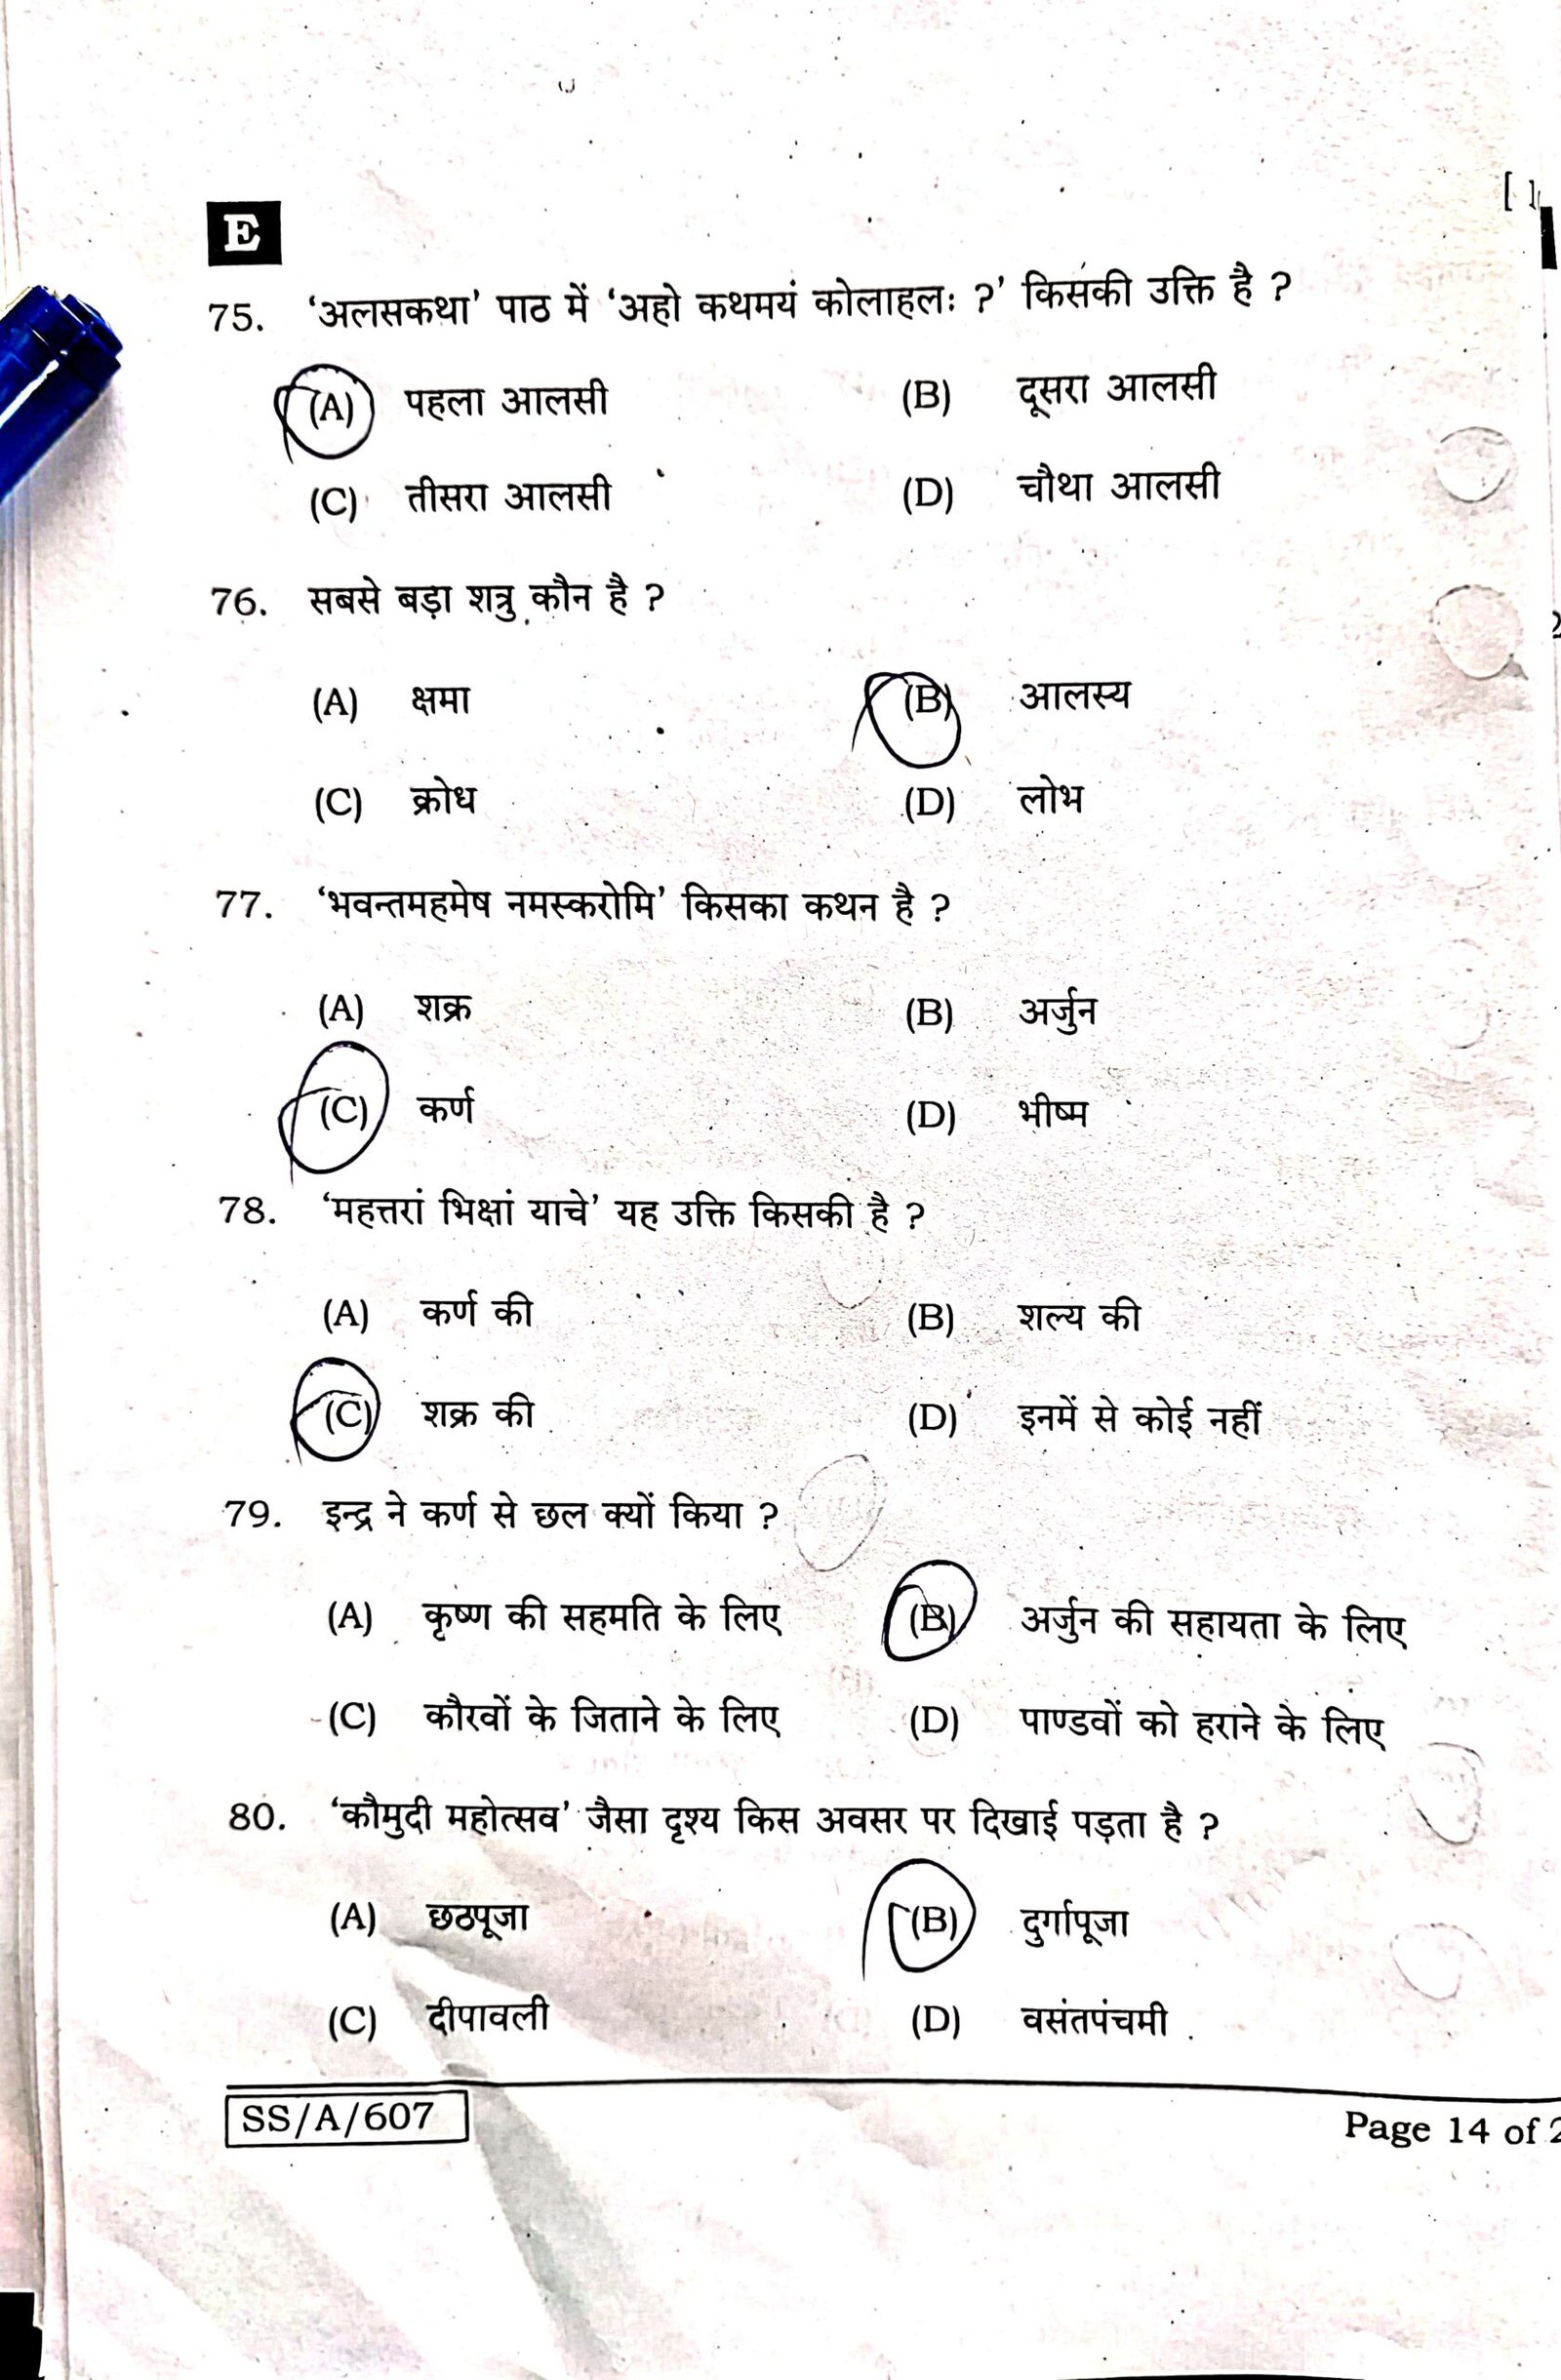 E
75. ‘अलसकथा’ पाठ में ‘अहो कथमयं कोलाहलः ?’ किसकी उक्ति है ?
(A) पहला आलसी (B) दूसरा आलसी
(C) तीसरा आलसी (D) चौथा आलसी
76. सबसे बड़ा शत्रु कौन है ?
(A) क्षमा (B) आलस्य
(C) क्रोध (D) लोभ
77. ‘भवन्तमहमेष नमस्करोमि’ किसका कथन है ?
(A) शक्र (B) अर्जुन
(C) कर्ण (D) भीष्म
78. ‘महत्तरां भिक्षां याचे’ यह उक्ति किसकी है ?
(A) कर्ण की (B) शल्य की
(C) शक्र की (D) इनमें से कोई नहीं
79. इन्द्र ने कर्ण से छल क्यों किया ?
(A) कृष्ण की सहमति के लिए (B) अर्जुन की सहायता के लिए
(C) कौरवों के जिताने के लिए (D) पाण्डवों को हराने के लिए
80. ‘कौमुदी महोत्सव’ जैसा दृश्य किस अवसर पर दिखाई पड़ता है ?
(A) छठपूजा (B) दुर्गापूजा
(C) दीपावली (D) वसंतपंचमी
SS/A/607 Page 14 of